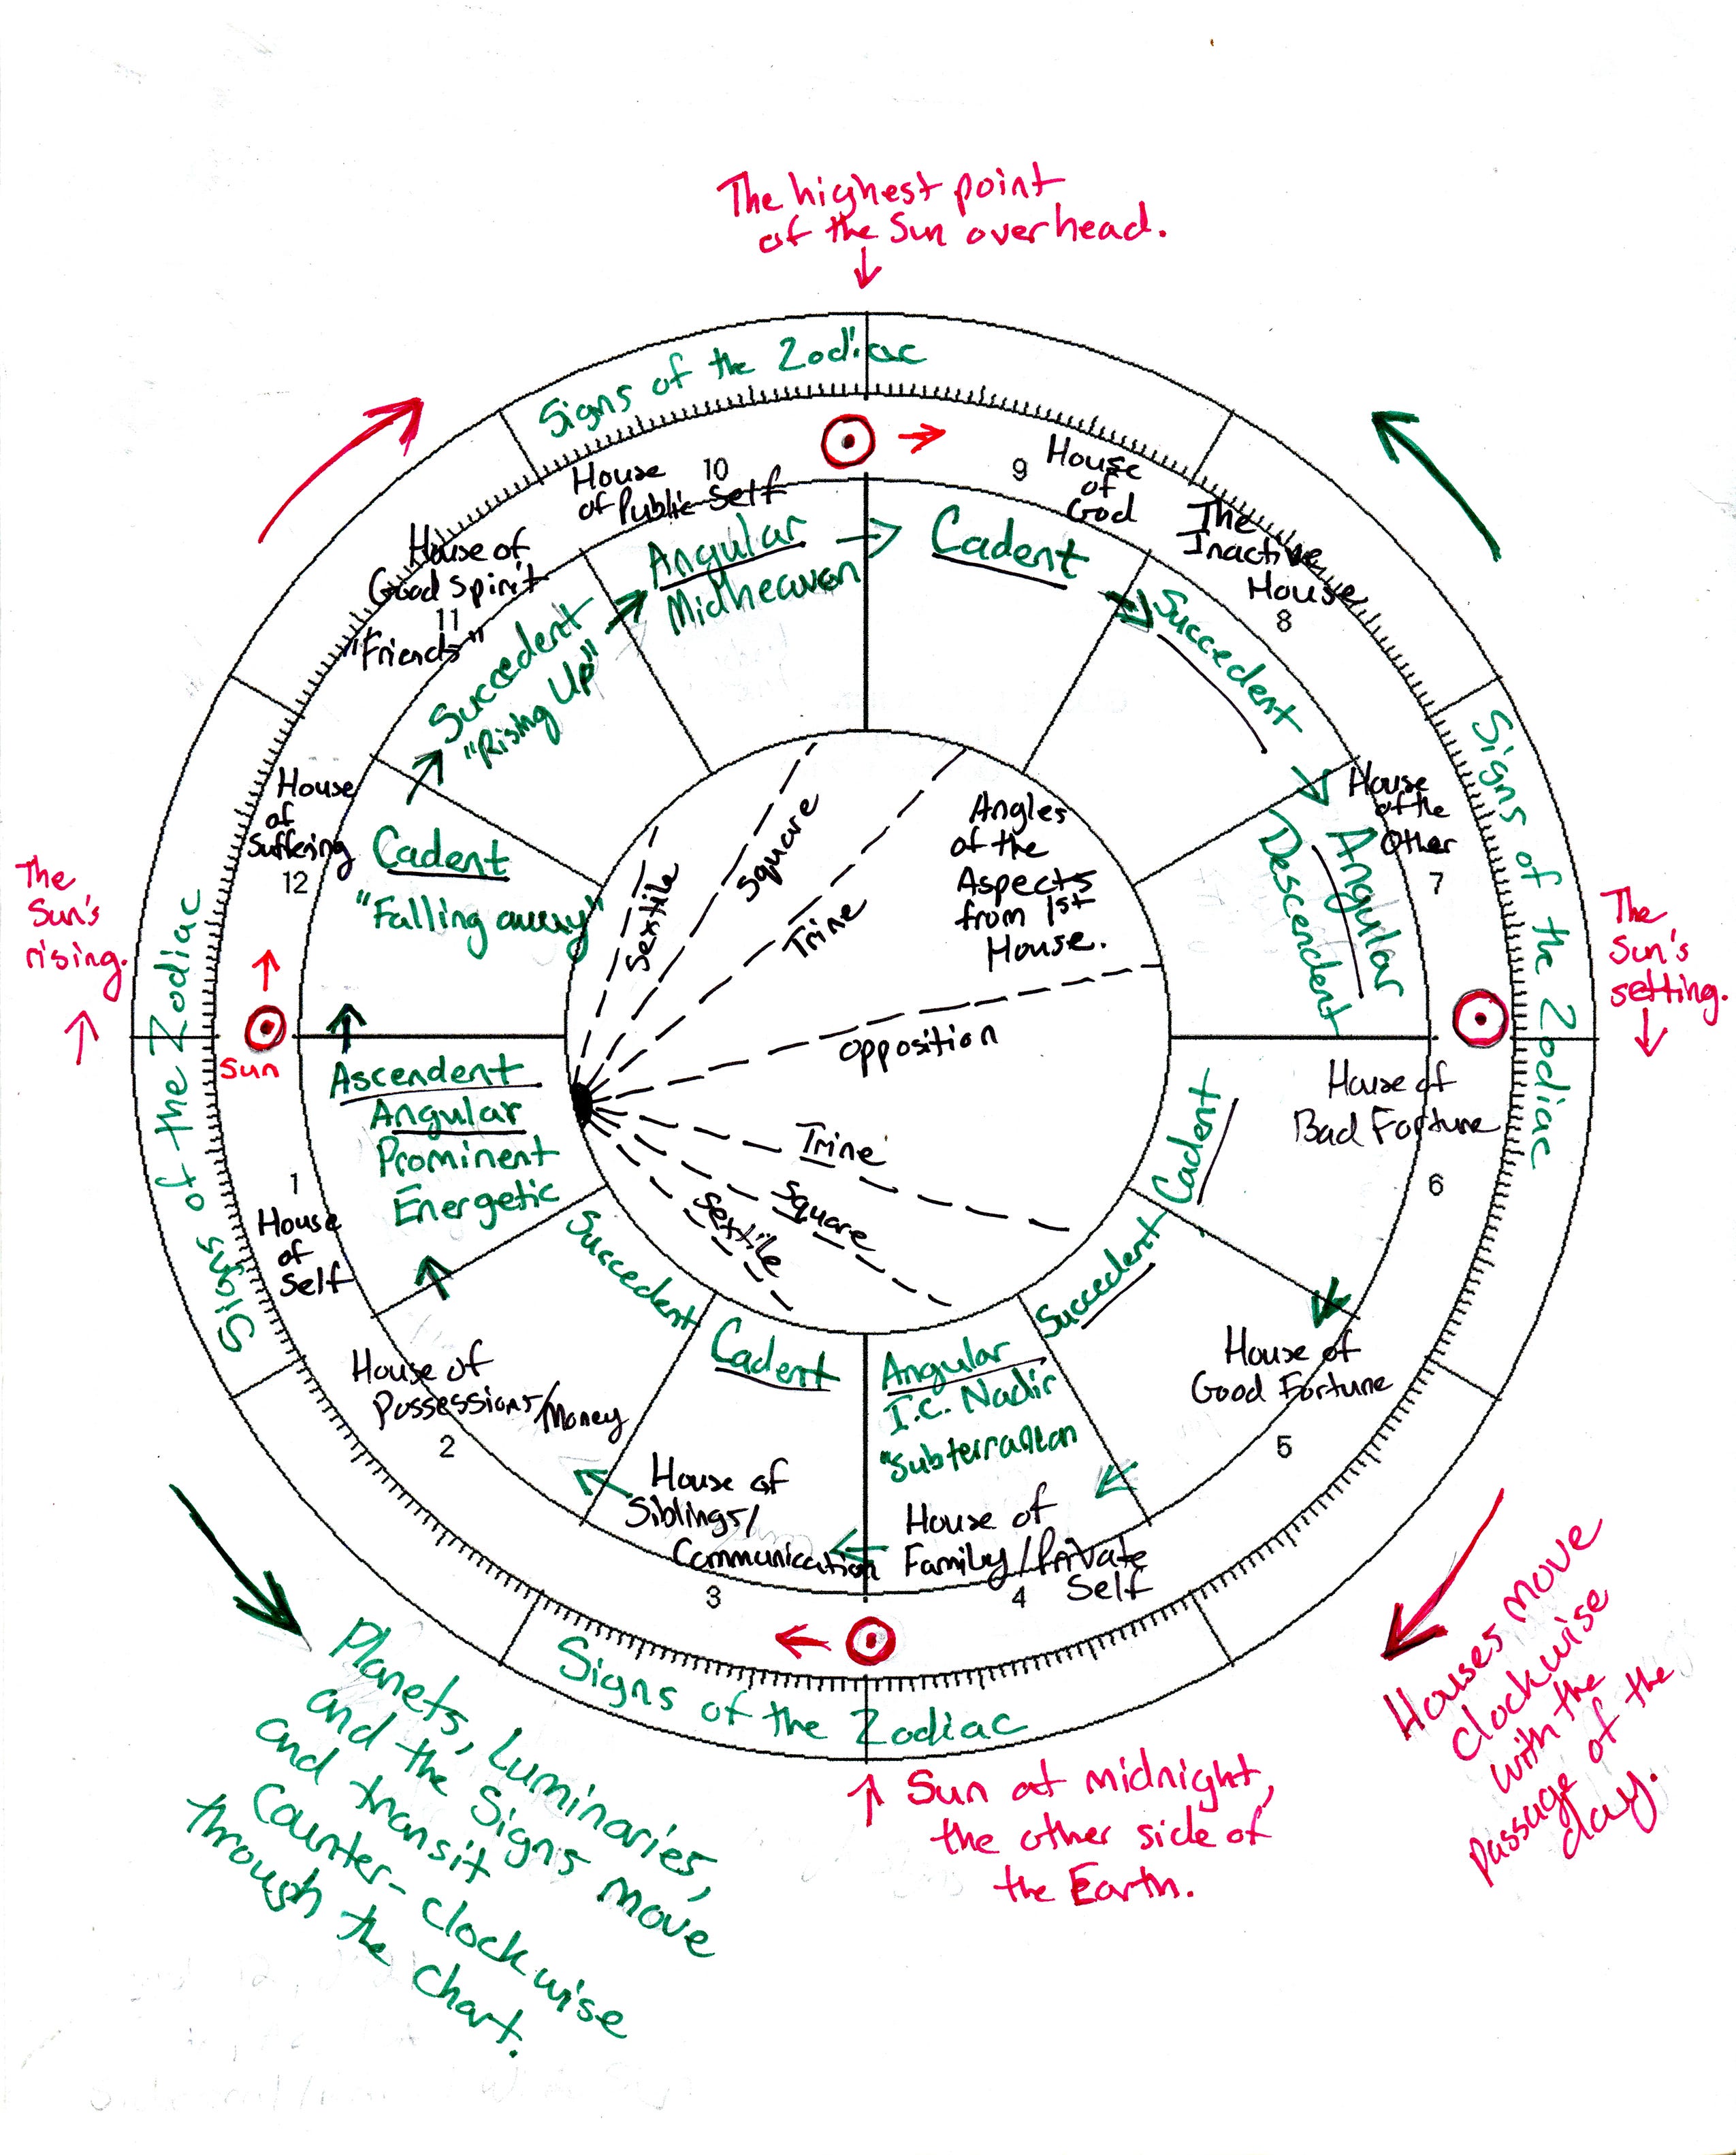 The highest point
of the Sun overhead.
↓
Signs of the Zodiac
10
House
of Public Self
→
9
House
of
God
Angular
Midheaven
Cadent
The
Inactive
House
8
House of
Good Spirit
11
"Friends"
Succedent
"Rising Up"
Succedent
House
of
Suffering
12
Cadent
"Falling away"
The
Sun's
rising.
↑
Sun
Signs of the Zodiac
Sextile
Square
Trine
Angles
of the
Aspects
from 1st
House.
opposition
Trine
Square
Sextile
House
of the
Other
7
Angular
Descendent
Signs of the Zodiac
The
Sun's
setting.
↓
Ascendent
Angular
Prominent
Energetic
1
House
of
Self
House of
Bad Fortune
6
Cadent
Succedent
House of
Possessions/Money
2
Cadent
House of
Siblings/
Communication
3
Angular
I.C. Nadir
"Subterranean
House of
Family/Private
Self
4
Succedent
House of
Good Fortune
5
Signs of the Zodiac
Planets, Luminaries,
and the Signs move
and transit
Counter-clockwise
through the chart.
↑ Sun at midnight,
the other side of
the Earth.
Houses move
clockwise
with the
passage of the
day.